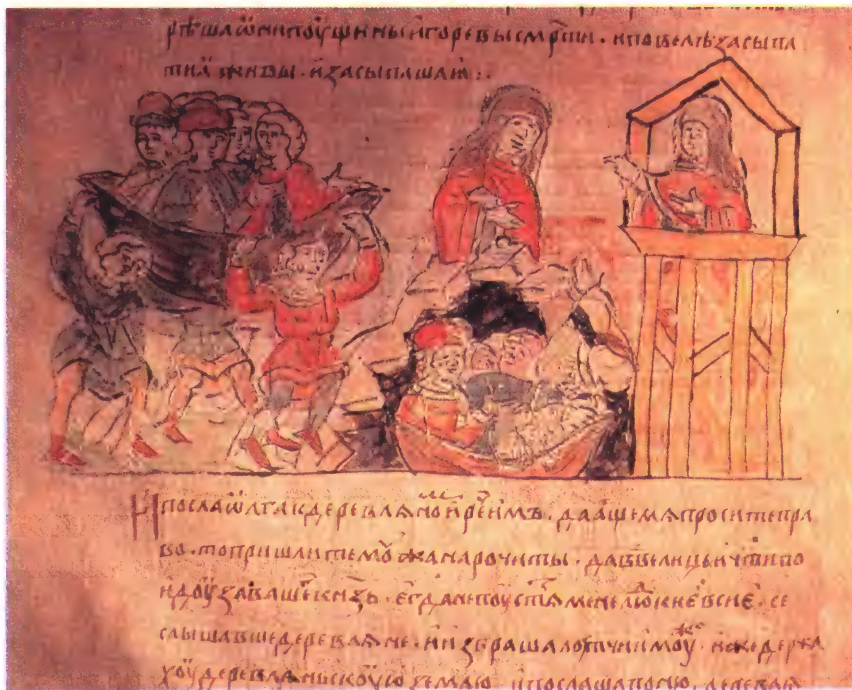 рѣша ѿни пѹщи ны и горе вы смрти . и повелѣ засыпа
ти ѧ живы . и засыпаша ѧ :.
И посла ѡлга к деревлѧно и рѐ имъ . да аще мѧ просите пра
во . то пришлите мѹжа нарочиты . да в велици чти по
идѹ за ваше кнзь . егда не пѹстѧ мене людие киевсиє . се
слышавше деревлѧне . и избраша лѹтчии мѹж . иже держа
хѹ деревлѧньскѹю землю и послаша по ню . деревлѧ